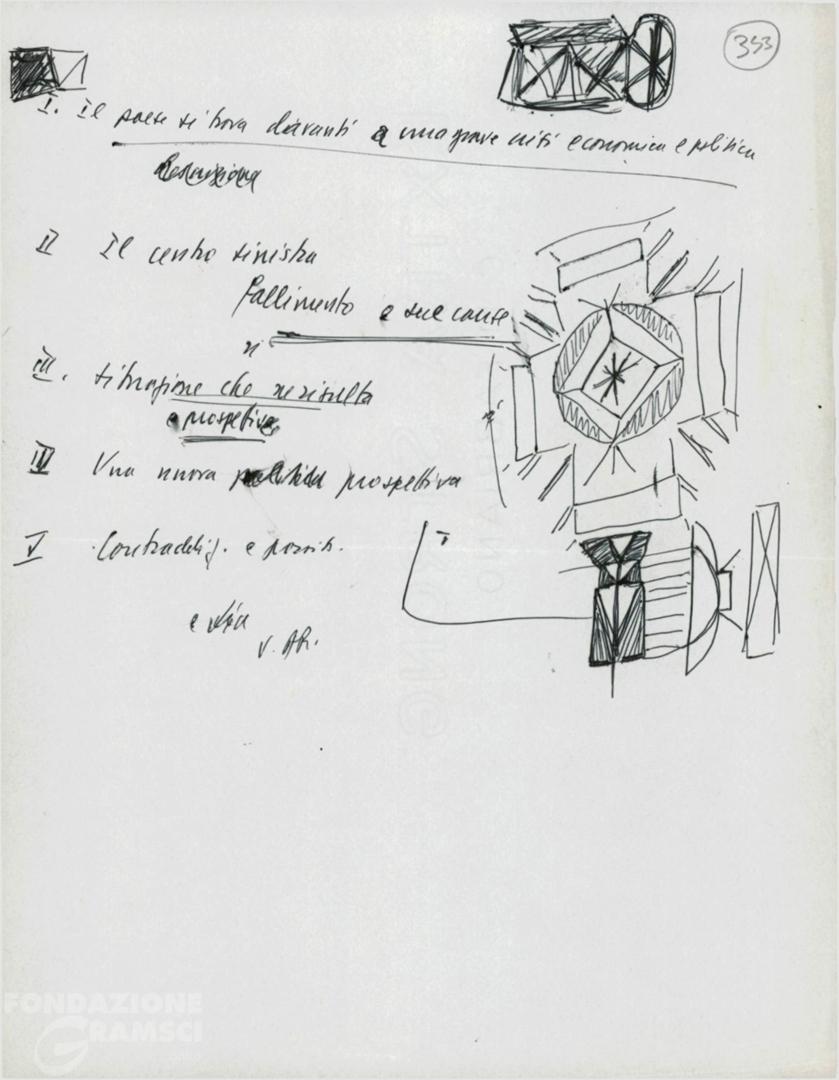 353
I. Il paese si trova davanti a una grave crisi economica e politica
II Il centro sinistra
fallimento e sue cause
III. situazione che ne risulta
e prospettive
IIII Una nuova prospettiva
V Contraddiz. e posit.
e
V. AR.
I
FONDAZIONE
GRAMSCI